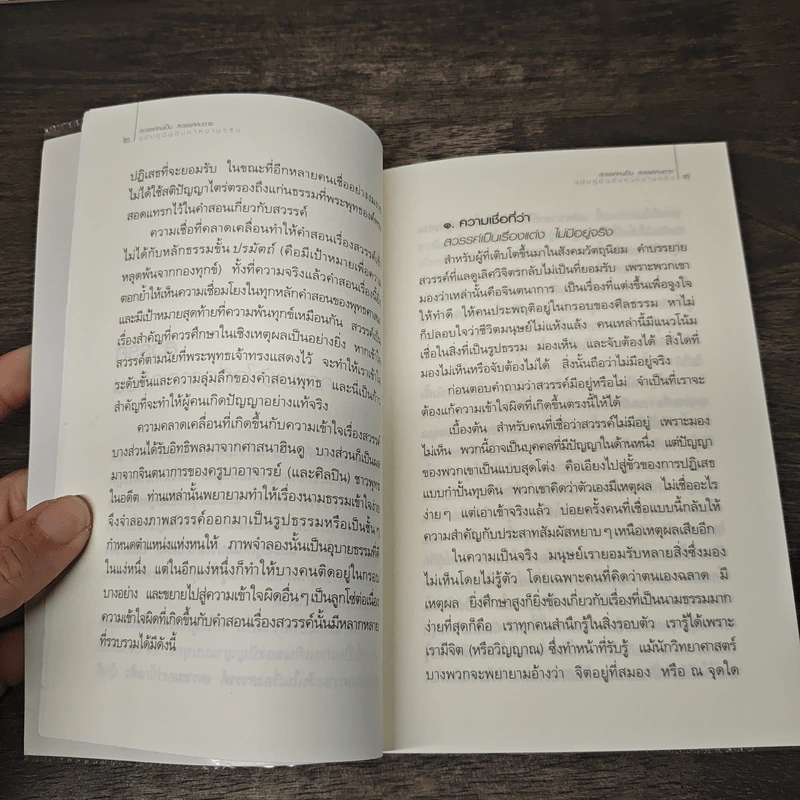 ๒ สวรรค์คนเป็น สวรรค์คนตาย
ปฏิเสธที่จะยอมรับ ในขณะที่อีกหลายคนเชื่ออย่างงมงาย
ไม่ได้ใช้สติปัญญาไตร่ตรองถึงแก่นธรรมที่พระพุทธองค์ทรง
สอดแทรกไว้ในคำสอนเกี่ยวกับสวรรค์
ความเชื่อที่คลาดเคลื่อนทำให้คำสอนเรื่องสวรรค์เข้า
ไม่ได้กับหลักธรรมชั้น ปรมัตถ์ (คือมีเป้าหมายเพื่อความ
หลุดพ้นจากกองทุกข์) ทั้งที่ความจริงแล้วคำสอนเรื่องนี้ยิ่ง
ตอกย้ำให้เห็นความเชื่อมโยงในทุกหลักคำสอนของพุทธศาสนา
และมีเป้าหมายสุดท้ายที่ความพ้นทุกข์เหมือนกัน สวรรค์เป็น
เรื่องสำคัญที่ควรศึกษาในเชิงเหตุผลเป็นอย่างยิ่ง หากเข้าใจ
สวรรค์ตามนัยที่พระพุทธเจ้าทรงแสดงไว้ จะทำให้เราเข้าใจ
ระดับชั้นและความลุ่มลึกของคำสอนพุทธ และนี่เป็นก้าว
สำคัญที่จะทำให้ผู้คนเกิดปัญญาอย่างแท้จริง
ความคลาดเคลื่อนที่เกิดขึ้นกับความเข้าใจเรื่องสวรรค์
บางส่วนได้รับอิทธิพลมาจากศาสนาฮินดู บางส่วนก็เป็นผล
มาจากจินตนาการของครูบาอาจารย์ (และศิลปิน) ชาวพุทธ
ในอดีต ท่านเหล่านั้นพยายามทำให้เรื่องนามธรรมเข้าใจง่าย
จึงจำลองภาพสวรรค์ออกมาเป็นรูปธรรมหรือเป็นชั้นๆ
กำหนดตำแหน่งแห่งหนให้ ภาพจำลองนั้นเป็นอุบายธรรมที่ดี
ในแง่หนึ่ง แต่ในอีกแง่หนึ่งก็ทำให้บางคนติดอยู่ในกรอบ
บางอย่าง และขยายไปสู่ความเข้าใจผิดอื่นๆ เป็นลูกโซ่ต่อเนื่อง
ความเข้าใจผิดที่เกิดขึ้นกับคำสอนเรื่องสวรรค์นั้นมีหลากหลาย
ที่รวบรวมได้มีดังนี้
สวรรค์คนเป็น สวรรค์คนตาย ๓
๑. ความเชื่อที่ว่า
สวรรค์เป็นเรื่องแต่ง ไม่มีอยู่จริง
สำหรับผู้ที่เติบโตขึ้นมาในสังคมวัตถุนิยม คำบรรยาย
สวรรค์ที่แลดูเลิศวิจิตรกลับไม่เป็นที่ยอมรับ เพราะพวกเขา
มองว่าเหล่านั้นคือจินตนาการ เป็นเรื่องที่แต่งขึ้นเพื่อจูงใจ
ให้ทำดี ให้คนประพฤติอยู่ในกรอบของศีลธรรม หาไม่
ก็ปลอบใจว่าชีวิตมนุษย์ไม่แห้งแล้ง คนเหล่านี้มีแนวโน้ม
เชื่อในสิ่งที่เป็นรูปธรรม มองเห็น และจับต้องได้ สิ่งใดที่
มองไม่เห็นหรือจับต้องไม่ได้ สิ่งนั้นถือว่าไม่มีอยู่จริง
ก่อนตอบคำถามว่าสวรรค์มีอยู่หรือไม่ จำเป็นที่เราจะ
ต้องแก้ความเข้าใจผิดที่เกิดขึ้นตรงนี้ให้ได้
เบื้องต้น สำหรับคนที่เชื่อว่าสวรรค์ไม่มีอยู่ เพราะมอง
ไม่เห็น พวกนี้อาจเป็นบุคคลที่มีปัญญาในด้านหนึ่ง แต่ปัญญา
ของพวกเขาเป็นแบบสุดโต่ง คือเอียงไปสู่ขั้วของการปฏิเสธ
แบบกำปั้นทุบดิน พวกเขาคิดว่าตัวเองมีเหตุผล ไม่เชื่ออะไร
ง่ายๆ แต่เอาเข้าจริงแล้ว บ่อยครั้งคนที่เชื่อแบบนี้กลับให้
ความสำคัญกับประสาทสัมผัสหยาบๆ เหนือเหตุผลเสียอีก
ในความเป็นจริง มนุษย์เรายอมรับหลายสิ่งซึ่งมอง
ไม่เห็นโดยไม่รู้ตัว โดยเฉพาะคนที่คิดว่าตนเองฉลาด มี
เหตุผล ยิ่งศึกษาสูงก็ยิ่งข้องเกี่ยวกับเรื่องที่เป็นนามธรรมมาก
ง่ายที่สุดก็คือ เราทุกคนสำนึกรู้ในสิ่งรอบตัว เรารู้ได้เพราะ
เรามีจิต (หรือวิญญาณ) ซึ่งทำหน้าที่รับรู้ แม้นักวิทยาศาสตร์
บางพวกจะพยายามอ้างว่า จิตอยู่ที่สมอง หรือ ณ จุดใด